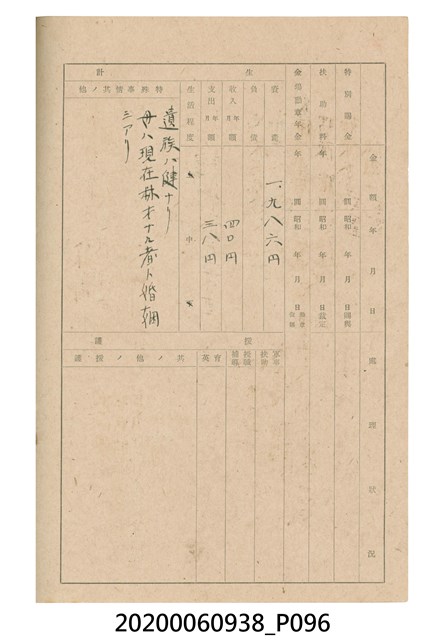 金額 年月日 處理狀況
特別賜金 圓 昭和 年 月 日
扶助料 年 圓 昭和 年 月 日 裁定
金鵄勳章年金 年 圓 昭和 年 月 日
生計
資產 一、九八六円
負債
收入 年額 月額 四〇円
支出 年額 月額 三八円
生活程度 中
特殊事情其ノ他
遺族ハ健ナリ
母ハ現在林才ナル者ト婚姻
シアリ
援護
育英
其ノ他ノ援護
20200060938_P096